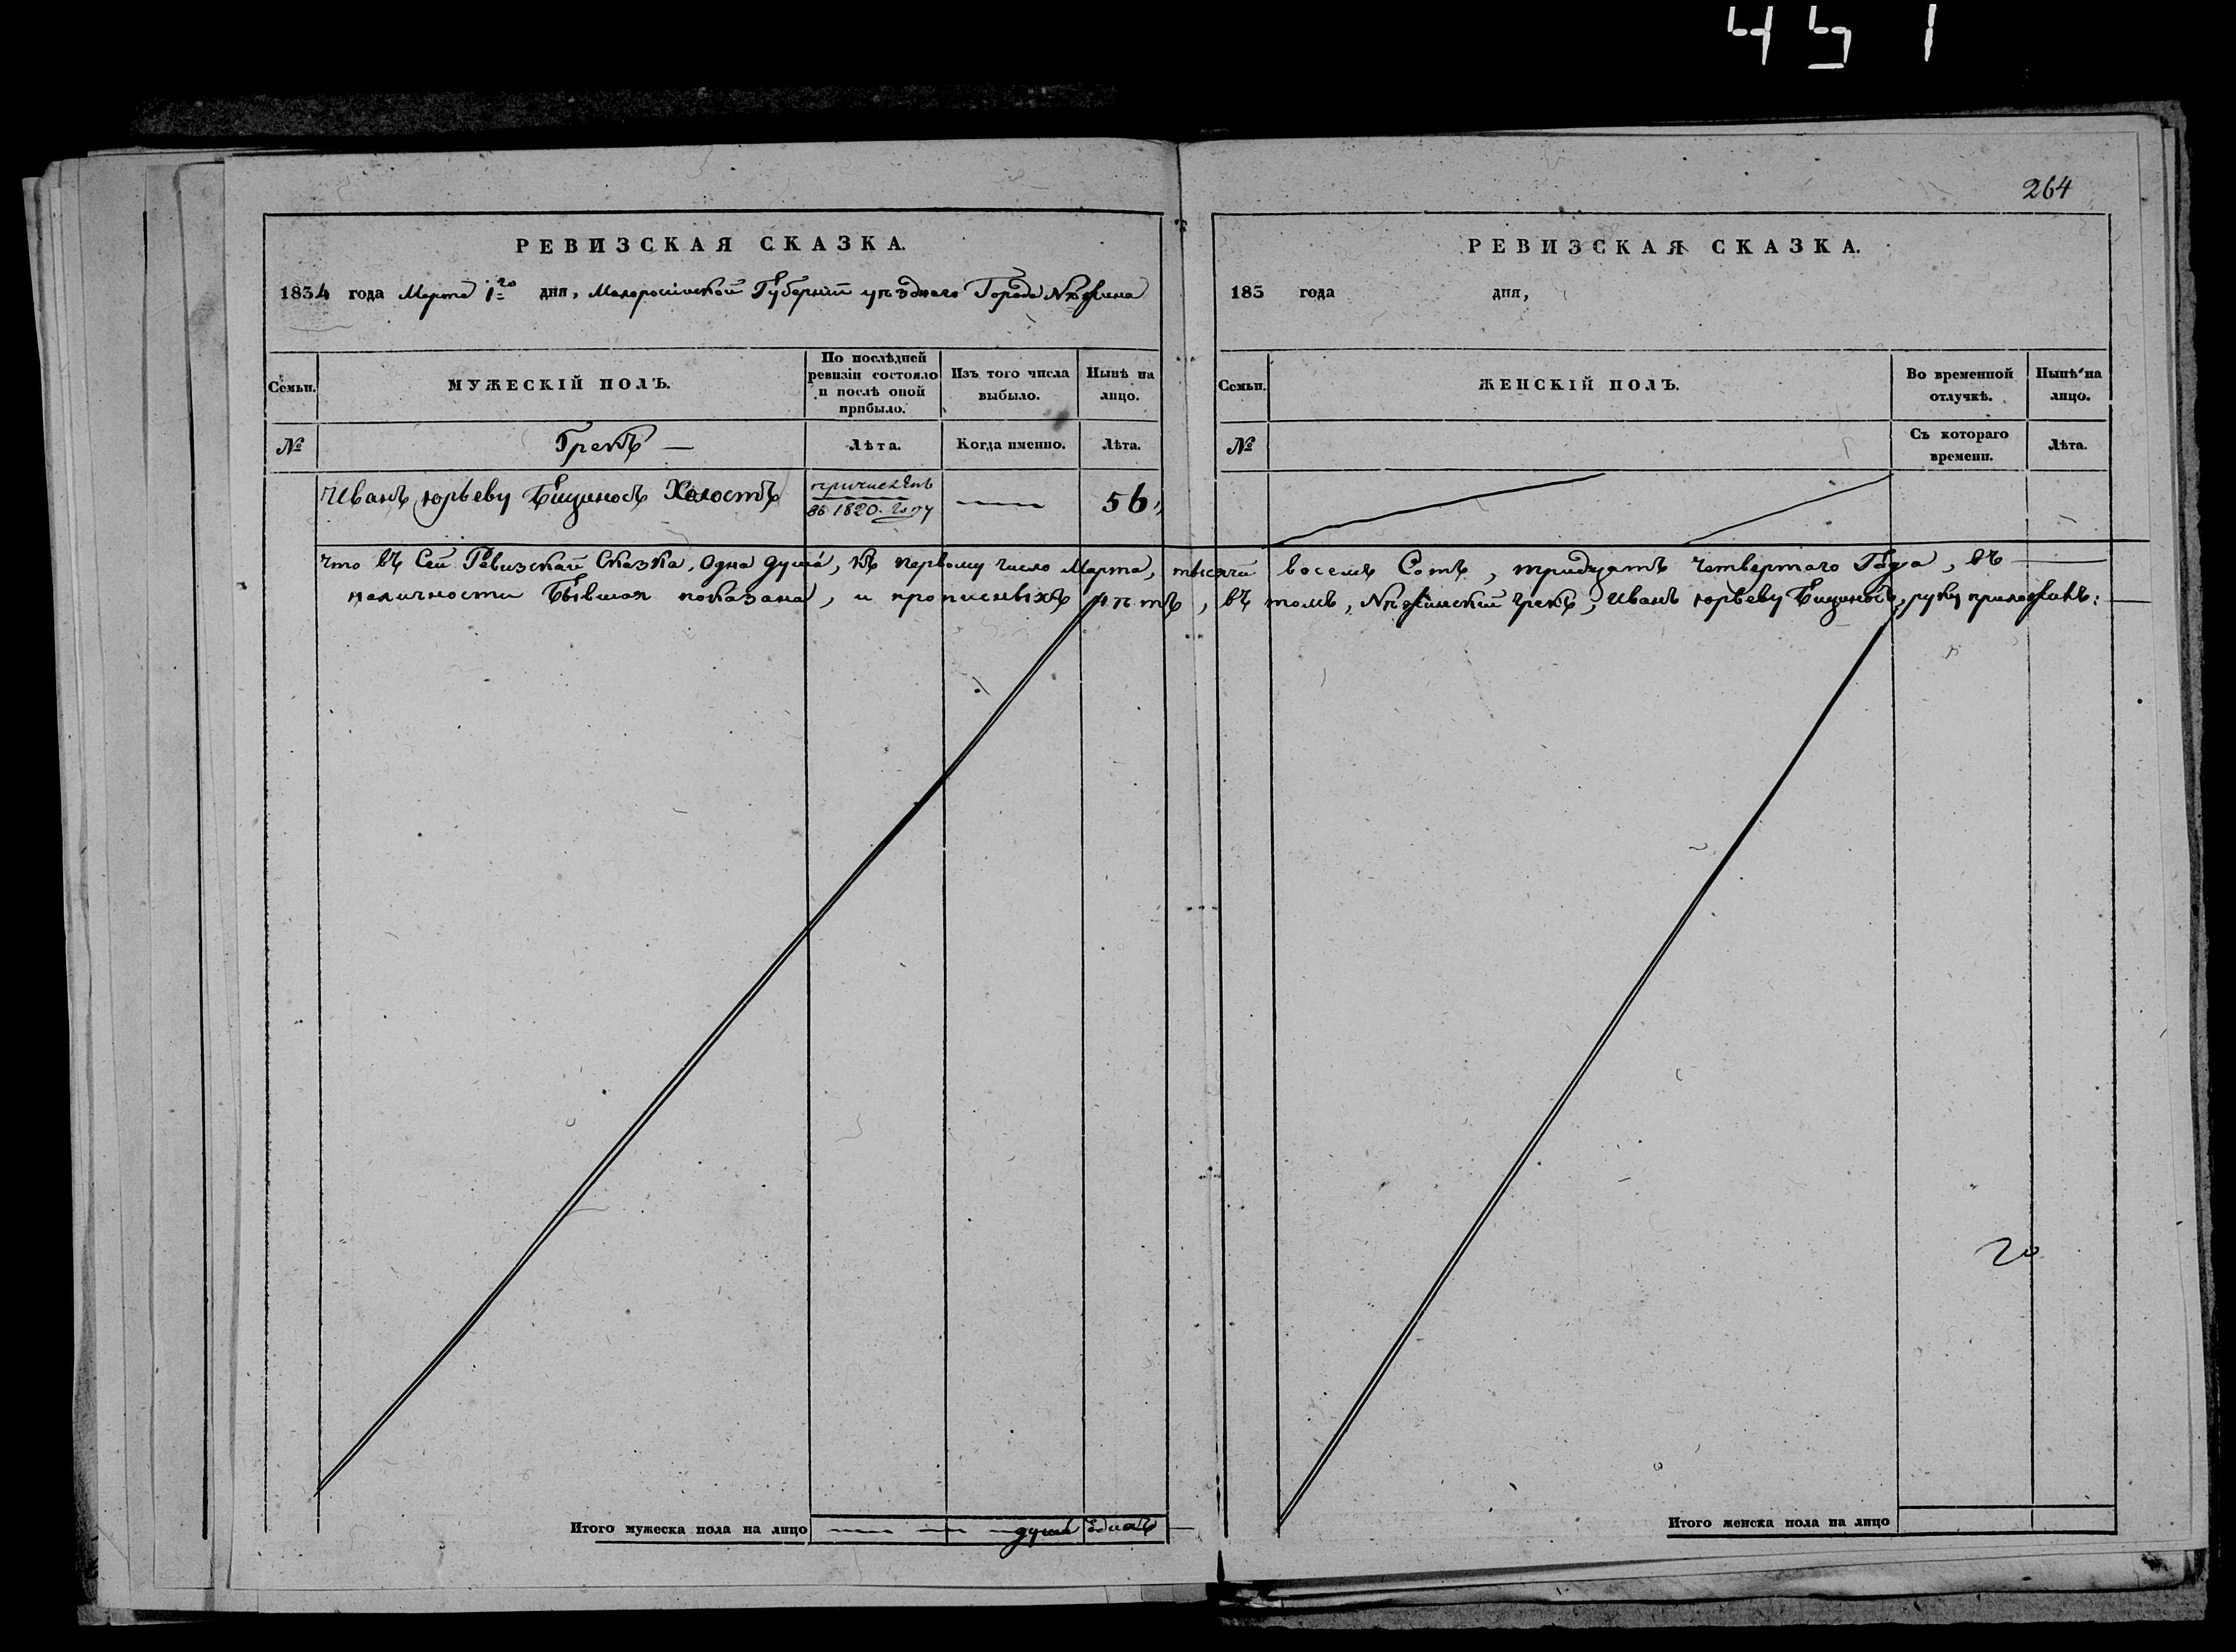 4 5 1
264
РЕВИЗСКАЯ СКАЗКА.
1834 года Марта 1го дня, Малоросийской Губернии уѣзднаго Города Нѣжина
Семьи.
МУЖЕСКІЙ ПОЛЪ.
По послѣдней ревизіи состояло и послѣ оной прибыло.
Изъ того числа выбыло.
Нынѣ на лицо.
№
Грекъ —
Лѣта.
Когда именно.
Лѣта.
Иванъ юрьеву Бицыносъ Холостъ
причисленъ
въ 1820. году
56
РЕВИЗСКАЯ СКАЗКА.
183 года дня,
Семьи.
ЖЕНСКІЙ ПОЛЪ.
Во временной отлучкѣ.
Нынѣ на лицо.
№
Съ котораго времени.
Лѣта.
что въ Сей Ревизской Сказка, одна душа, къ первому число Марта, тысячи восемъ Сотъ, тридцатъ четвертаго Года, въ
наличности Бывшая показана, и прописныхъ нѣтъ, въ томъ, Нѣжинский грекъ, Иванъ юрьеву Бицыносъ, руку приложилъ:
Итого мужеска пола на лицо
душа Еднаъ
Итого женска пола на лицо